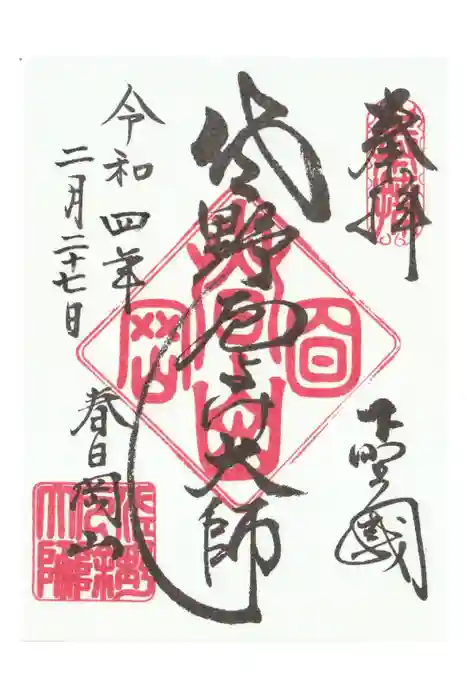 奉拝
下野國
佐野厄よけ大師
令和四年
二月二十七日
春日岡山